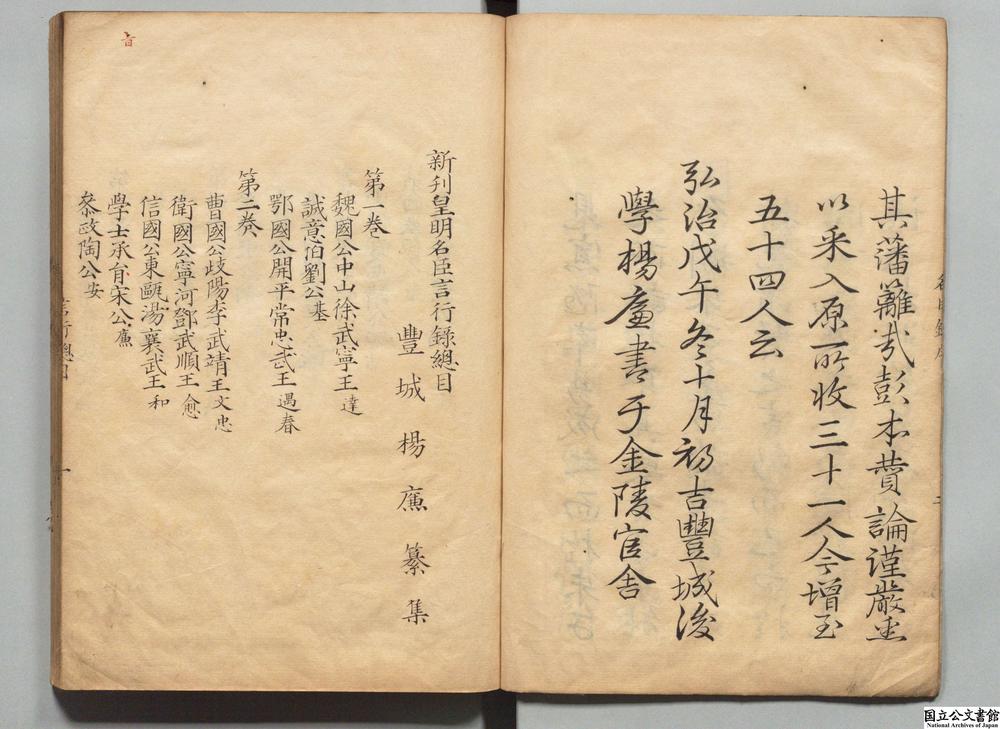 其藩籬幾彭本贊論謹嚴並
以采入原所收三十一人今增至
五十四人云
弘治戊午冬十月初吉豐城後
學楊廉書于金陵官舍
新刋皇明名臣言行錄總目
豐城楊廉纂集
第一卷
魏國公中山徐武寧王達
誠意伯劉公基
鄂國公開平常忠武王遇春
第二卷
曹國公歧陽李武靖王文忠
衛國公寧河鄧武順王愈
信國公東甌湯襄武王和
學士承旨宋公濂
參政陶公安
国立公文書館
National Archives of Japan